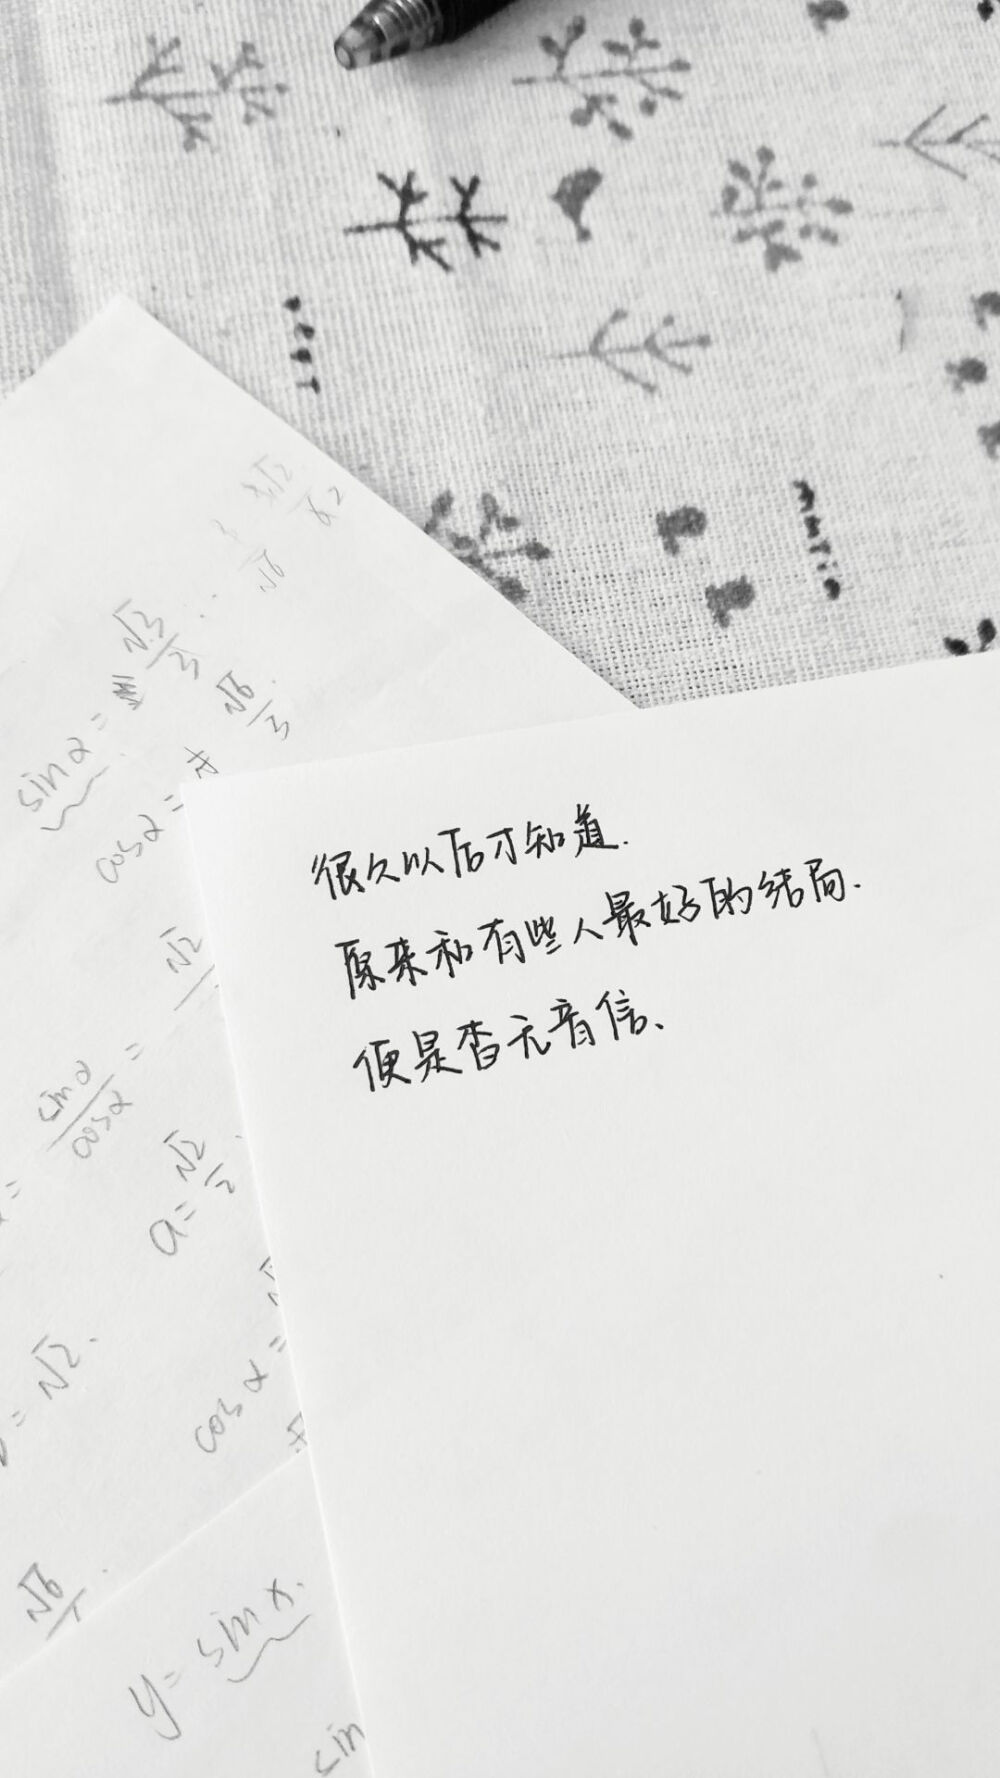 很久以后才知道.
原来和有些人最好的结局.
便是杳无音信、
sinα = √3/3
cosα = √6/3
√2
sinα/cosα =
a = √2/2
= √2.
cosα =
√6
y = sin x.
sin